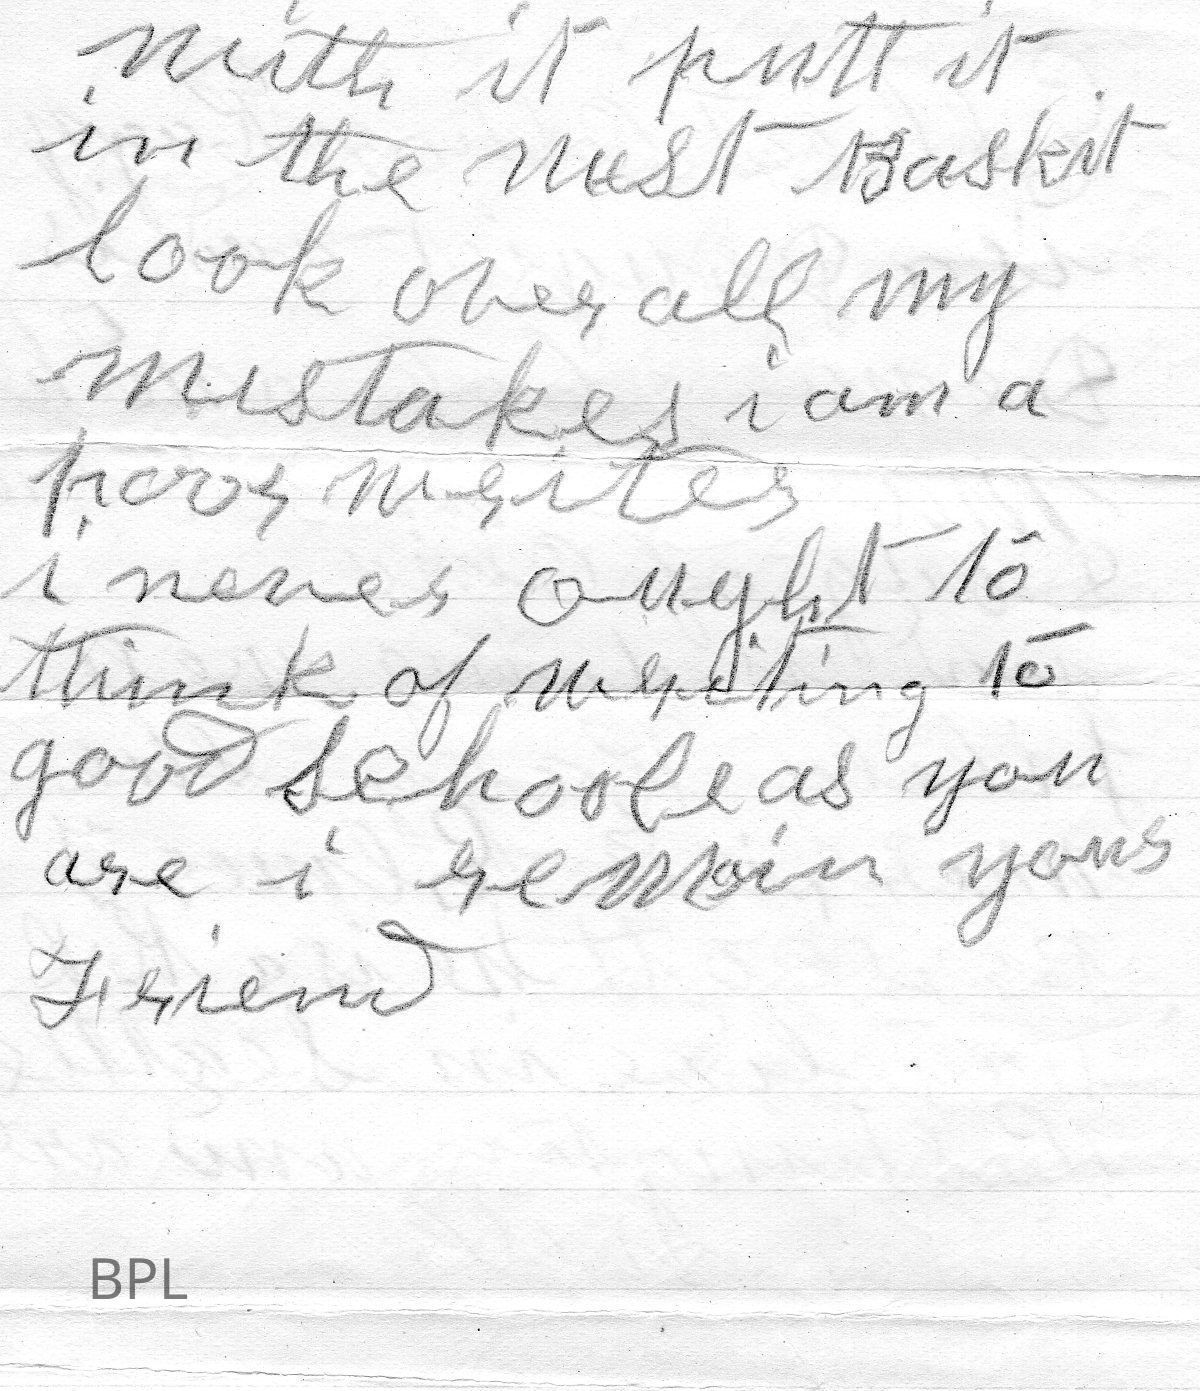 with it putt it
in the wast Baskit
look over all my
mistakes i am a
poor writer
i never ought to
think of writing to
good schoole as you
are i remain yours
Friend
BPL